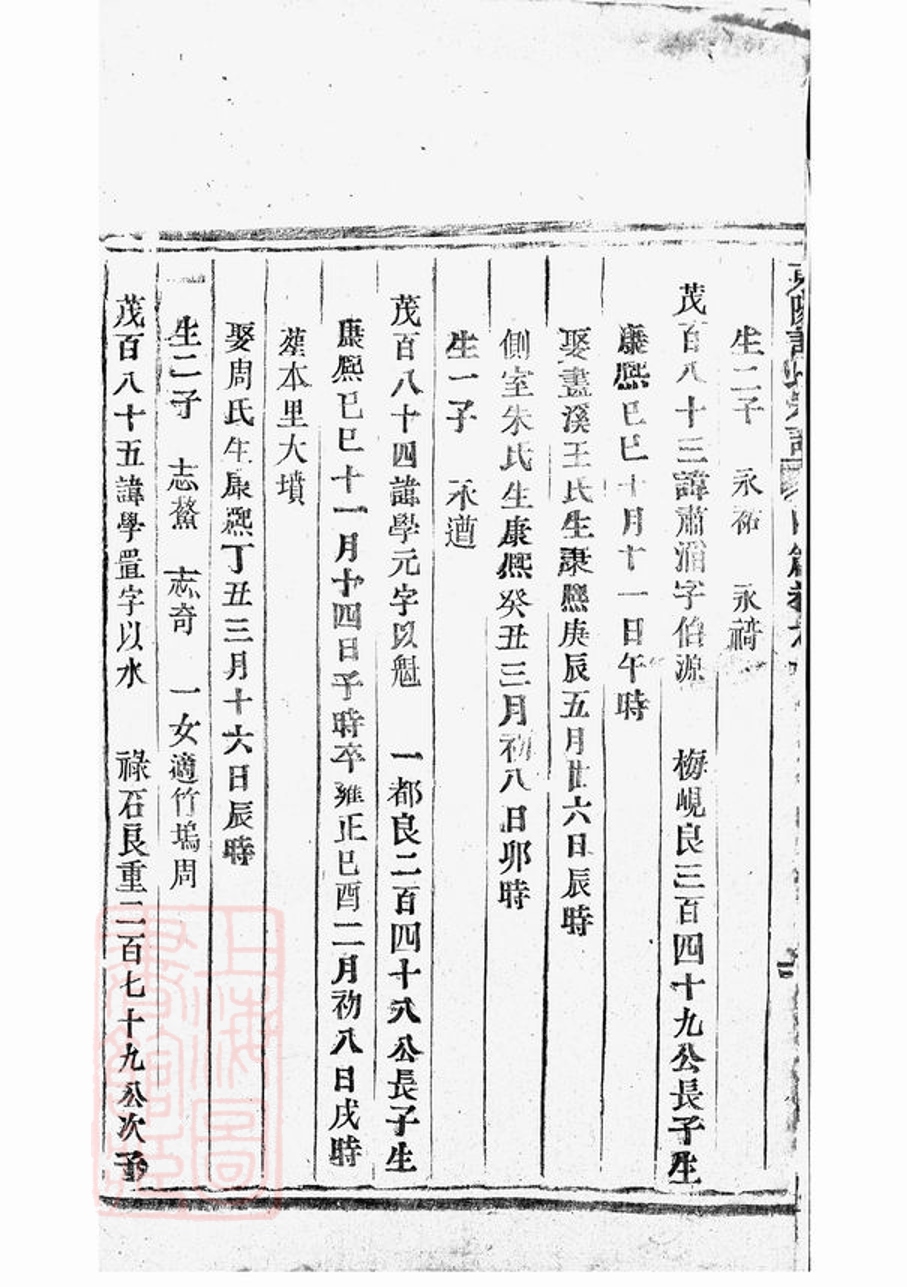 生二子 永祐 永禱
茂百八十三諱肅涌字伯源 梅峴良三百四十九公長子生
康熙已巳十月十一日午時
娶畫溪王氏生康熙庚辰五月廿六日辰時
側室朱氏生康熙癸丑三月初八日卯時
生一子 永遒
茂百八十四諱學元字以魁 一都良二百四十八公長子生
康熙已巳十一月十四日子時卒雍正已酉二月初八日戌時
葬本里大墳
娶周氏生康熙丁丑三月十六日辰時
生二子 志鰲 志奇 一女適竹塢周
茂百八十五諱學置字以水 祿石良重二百七十九公次子